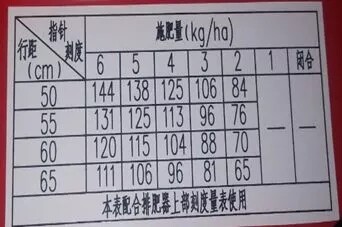 指针刻度 施肥量(kg/ha)
行距(cm) 6 5 4 3 2 1 闭合
50 144 138 125 106 84
55 131 125 113 96 76 — —
60 120 115 104 88 70
65 111 106 96 81 65
本表配合排肥器上部刻度量表使用